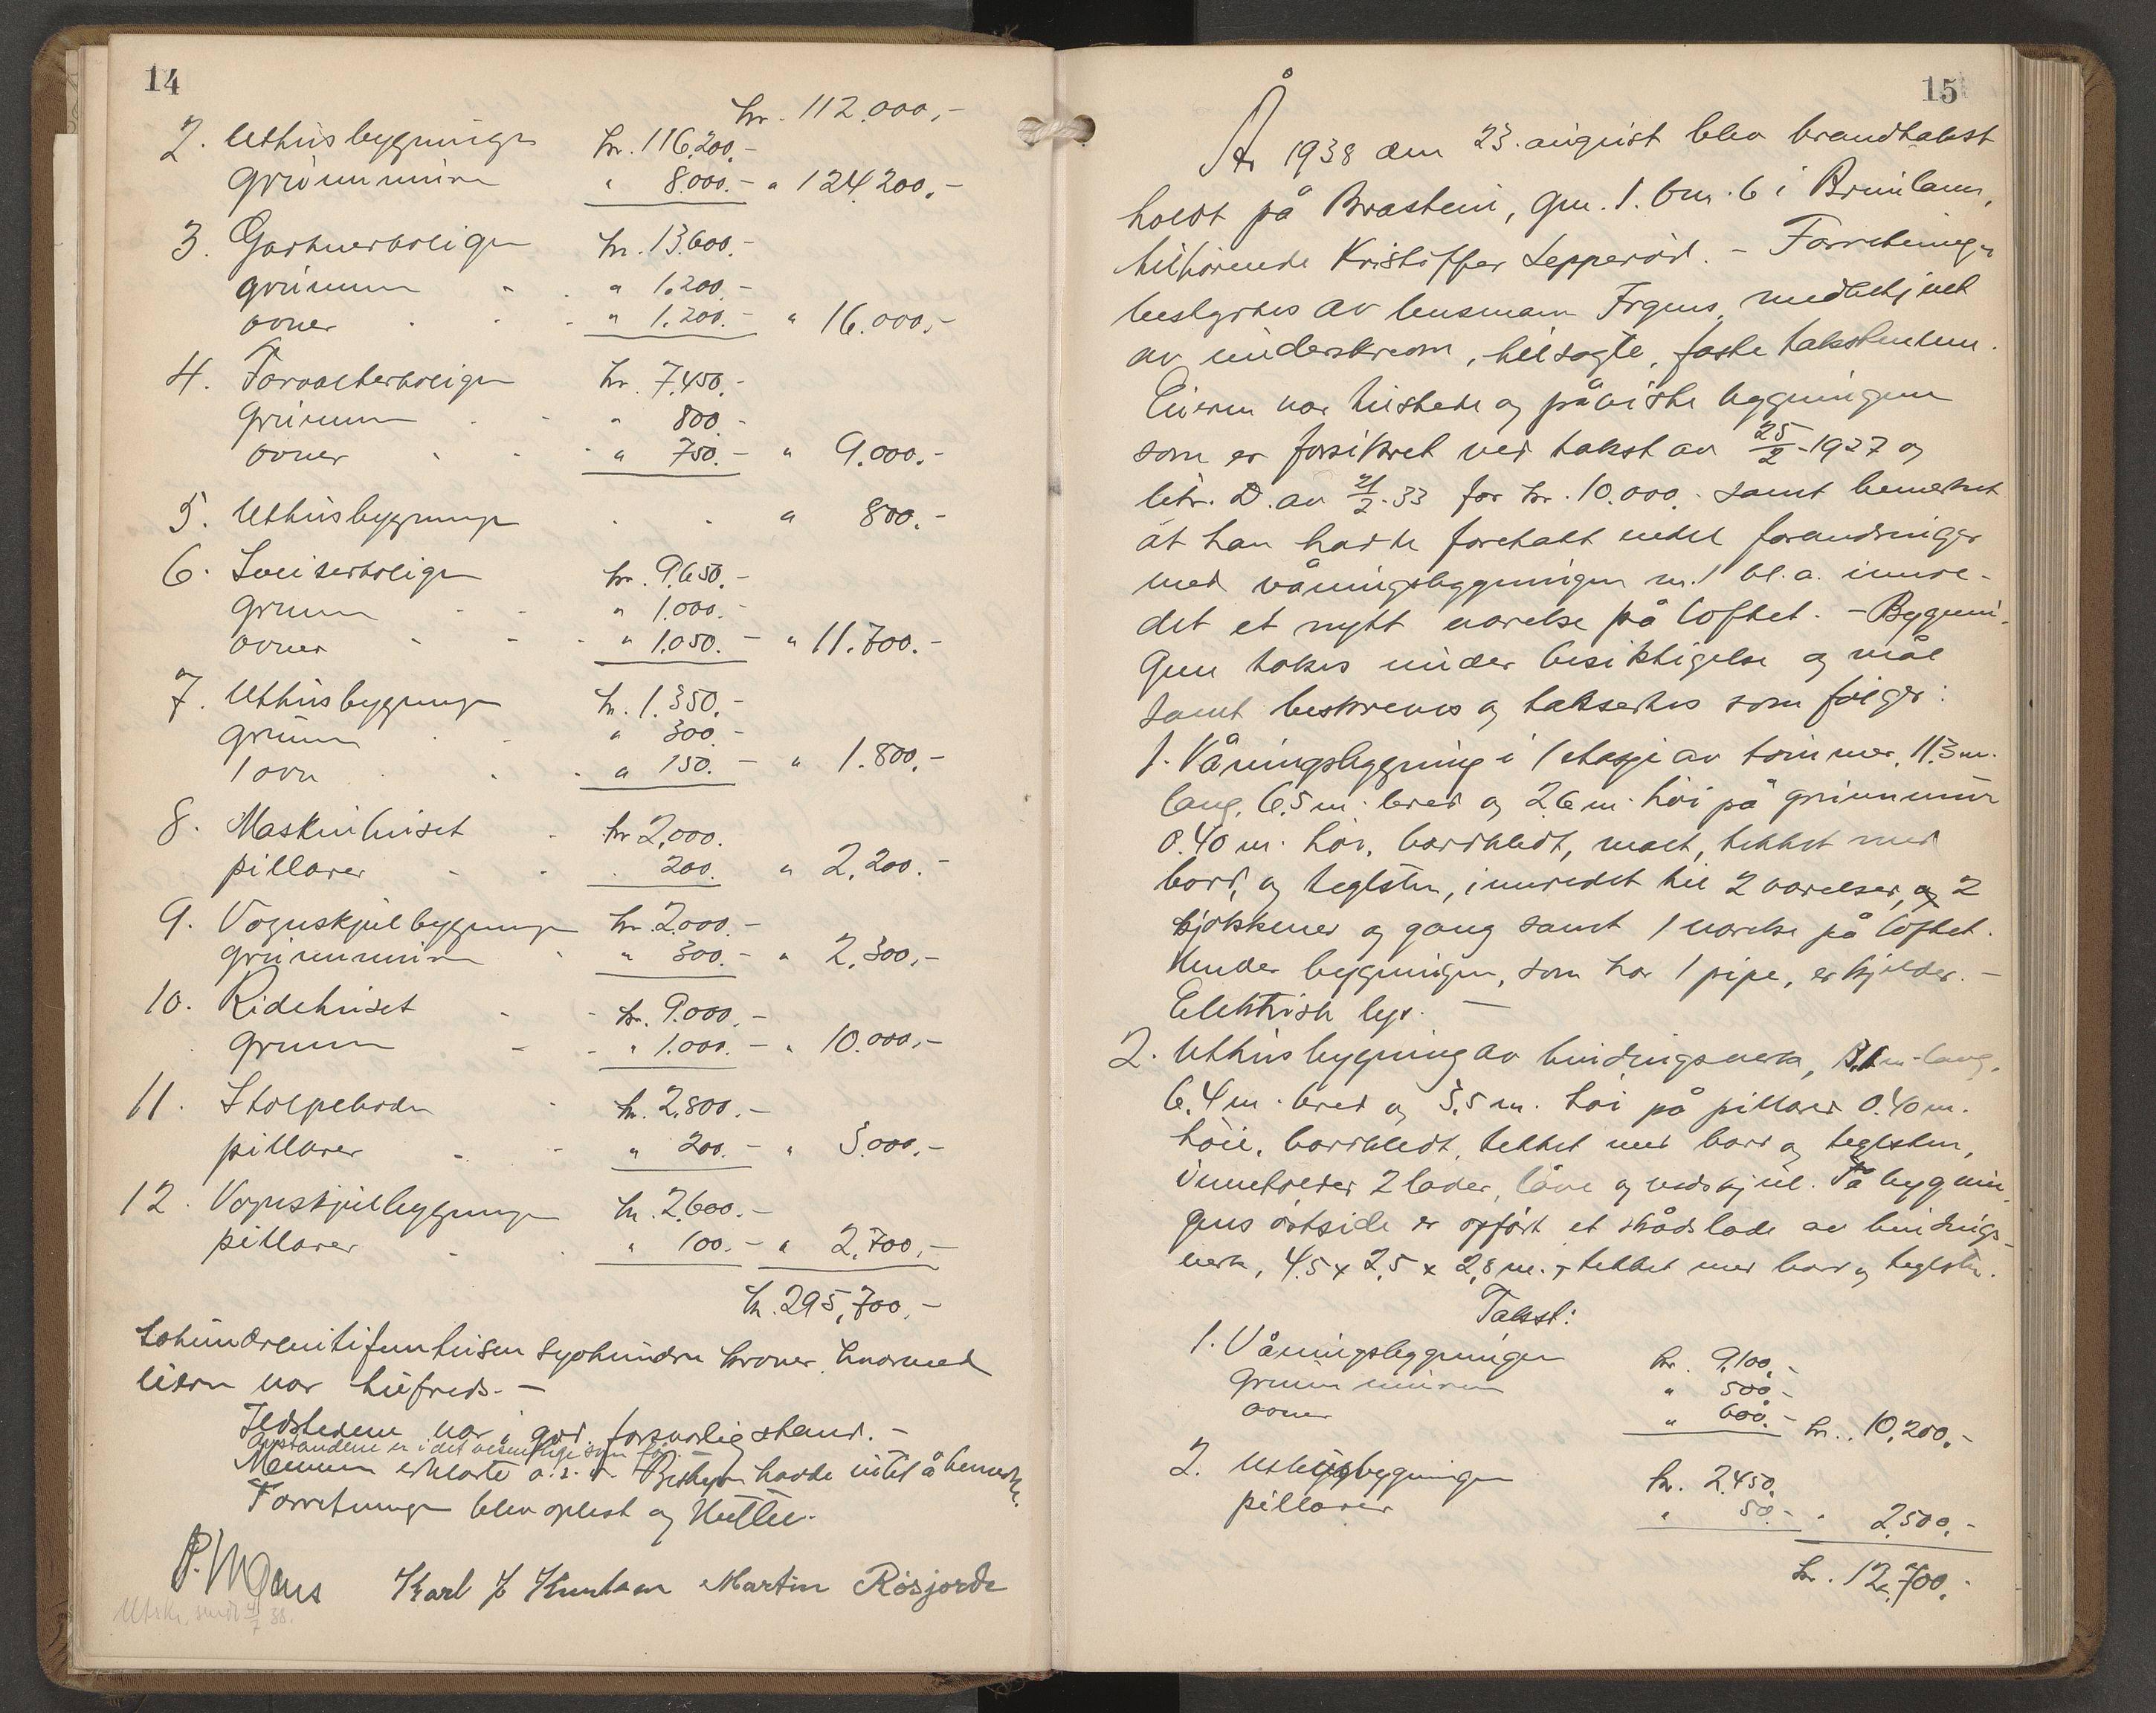 14
kr. 112.000,-
2. Uthusbygningen kr. 116.200.-
Grunnmuren " 8.000.- " 124.200,-
3. Gartnerboligen kr. 13.600.-
grunnmur " 1.200.-
ovner " 1.200.- " 16.000,-
4. Forvalterboligen kr. 7.450.-
Grunnmur " 800.-
ovner " 750.- " 9.000.-
5. Uthusbygningen " 800.-
6. Sveiserboligen kr. 9.650.-
Grunnm " 1.000.-
ovner " 1.050.- " 11.700.-
7. Uthusbygningen kr. 1.350.-
Grunnm " 300.-
1 ovn " 150.- " 1.800,-
8. Maskinhuset kr 2,000.
pillarer 200. " 2,200.-
9. Vognskjulbygningen kr. 2.000.-
grunnmuren " 300.- " 2,300,-
10. Ridehuset kr. 9.000,-
Grunnm " 1.000.- " 10.000,-
11. Stolpeboden kr. 2,800.-
pillarer " 200.- " 3.000,-
12. Vognskjulbygningen kr. 2.600.-
pillarer " 100.- " 2.700,-
kr. 295,700,-
tohundrenitifemtusen syvhundre kroner, hvormed
eieren var tilfreds.-
Ildstedene var i god, forsvarlig stand.-
Avstandene er i det vesentlige som før.
Mennene erklærte o.s.v. Bestyr. havde intet å bemerke.
Forretningen blev oplest og sluttet.
Karl J Knutsen Martin Rösjorde
Utskr. sendt 4/7 38.
15
År 1938 den 23. august blev brandtakst
holdt på Brastein, gnr. 1. bnr. 6 i Brunlanes,
tilhørende Kristoffer Lepperød. - Forretningen
bestyrtes av lensmann Frgens, medbetjent
av underskrevne, tilsagte, faste takstmenn.
Eieren var tilstede og påviste bygningene
som er forsikret ved takst av 25/2-1927 og
litr. D. av 21/2-33 for kr. 10.000. samt bemerket
at han hadde foretatt endel forandringer
med våningsbygningen nr. 1 bl. a. innre-
det et nytt værelse på loftet. - Bygnin-
gene tokes under besiktigelse og mål
samt beskreves og takseres som følger:
1. Våningsbygning i 1 etasje av tømmer, 11.3 m.
lang, 6,5 m. bred og 2.6 m. høi på grunnmur
0.40 m. høi, bordkledt, malt, tekket med
bord og teglsten, innredet til 2 værelser, og 2
kjøkkener og gang samt 1 værelse på loftet.
Under bygningen, som har 1 pipe, er kjelder. -
Elektrisk lys. -
2. Uthusbygning av bindingsverk, m. lang,
6.4 m. bred og 3.5 m. høi på pillarer 0.40 m.
høie, bordkledt, tekket med bord og teglsten,
inneholder 2 lader, låve og vedskjul. På bygnin-
gens østside er opført et skåds lade av bindings-
verk, 4.5 x 2,5 x 2,8 m. tekket med bord og teglsten.
Takst:
1. Våningsbygningen kr. 9.100,-
Grunnmuren " 500.-
ovner " 600.- kr. 10,200,-
2. Uthusbygningen kr. 2.450
pillarer " 50.- " 2,500,-
kr. 12,700.-